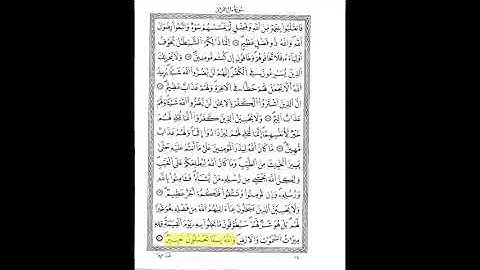 فَانقَلَبُوا بِنِعْمَةٍ مِّنَ اللَّهِ وَفَضْلٍ لَّمْ يَمْسَسْهُمْ سُوءٌ وَاتَّبَعُوا رِضْوَانَ
اللَّهِ وَاللَّهُ ذُو فَضْلٍ عَظِيمٍ إِنَّمَا ذَٰلِكُمُ الشَّيْطَانُ يُخَوِّفُ
أَوْلِيَاءَهُ فَلَا تَخَافُوهُمْ وَخَافُونِ إِن كُنتُم مُّؤْمِنِينَ وَلَا يَحْزُنكَ
الَّذِينَ يُسَارِعُونَ فِي الْكُفْرِ إِنَّهُمْ لَن يَضُرُّوا اللَّهَ شَيْئًا يُرِيدُ
اللَّهُ أَلَّا يَجْعَلَ لَهُمْ حَظًّا فِي الْآخِرَةِ وَلَهُمْ عَذَابٌ عَظِيمٌ
إِنَّ الَّذِينَ اشْتَرَوُا الْكُفْرَ بِالْإِيمَانِ لَن يَضُرُّوا اللَّهَ شَيْئًا وَلَهُمْ
عَذَابٌ أَلِيمٌ وَلَا يَحْسَبَنَّ الَّذِينَ كَفَرُوا أَنَّمَا نُمْلِي لَهُمْ
خَيْرٌ لِّأَنفُسِهِمْ إِنَّمَا نُمْلِي لَهُمْ لِيَزْدَادُوا إِثْمًا وَلَهُمْ عَذَابٌ
مُّهِينٌ مَّا كَانَ اللَّهُ لِيَذَرَ الْمُؤْمِنِينَ عَلَىٰ مَا أَنتُمْ عَلَيْهِ حَتَّىٰ
يَمِيزَ الْخَبِيثَ مِنَ الطَّيِّبِ وَمَا كَانَ اللَّهُ لِيُطْلِعَكُمْ عَلَى الْغَيْبِ
وَلَٰكِنَّ اللَّهَ يَجْتَبِي مِن رُّسُلِهِ مَن يَشَاءُ فَآمِنُوا بِاللَّهِ
وَرُسُلِهِ وَإِن تُؤْمِنُوا وَتَتَّقُوا فَلَكُمْ أَجْرٌ عَظِيمٌ
وَلَا يَحْسَبَنَّ الَّذِينَ يَبْخَلُونَ بِمَا آتَاهُمُ اللَّهُ مِن فَضْلِهِ هُوَ خَيْرًا
لَّهُم بَلْ هُوَ شَرٌّ لَّهُمْ سَيُطَوَّقُونَ مَا بَخِلُوا بِهِ يَوْمَ الْقِيَامَةِ وَلِلَّهِ
مِيرَاثُ السَّمَاوَاتِ وَالْأَرْضِ وَاللَّهُ بِمَا تَعْمَلُونَ خَبِيرٌ